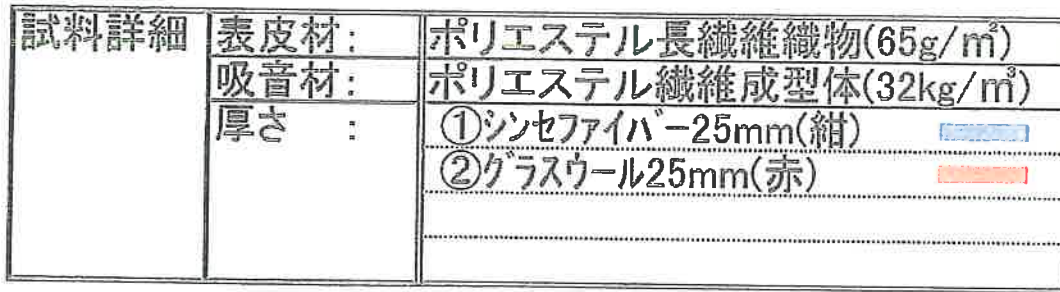 試料詳細 表皮材: ポリエステル長繊維織物(65g/㎡)
吸音材: ポリエステル繊維成型体(32kg/㎥)
厚さ : ①シンセファイバー25mm(紺)
②グラスウール25mm(赤)